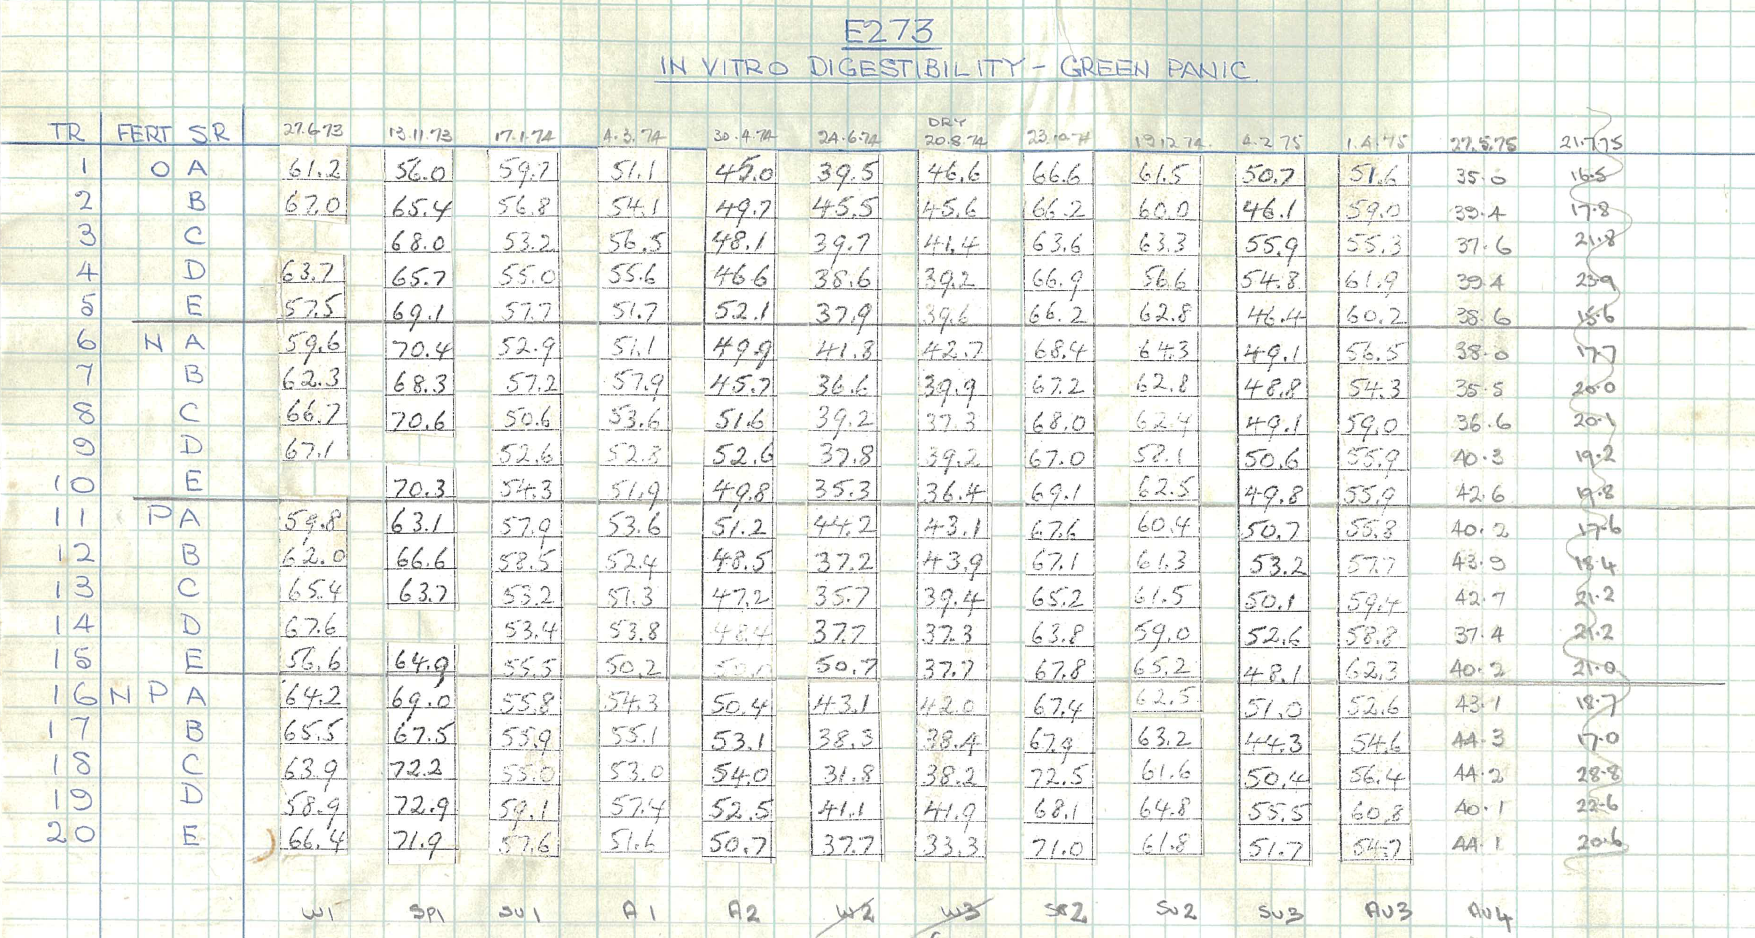 E273
IN VITRO DIGESTIBILITY - GREEN PANIC.
DRY
TR FERT S.R 27.6.73 13.11.73 17.1.74 4.3.74 30.4.74 24.6.74 20.8.74 23.10.74 19.12.74. 4.2.75 1.4.75 27.5.75 21.7.75
1 O A 61.2 56.0 59.7 51.1 45.0 39.5 46.6 66.6 61.5 50.7 51.6 35.0 16.5
2 B 67.0 65.4 56.8 54.1 49.7 45.5 45.6 66.2 60.0 46.1 59.0 39.4 17.8
3 C 68.0 53.2 56.5 48.1 39.7 41.4 63.6 63.3 55.9 55.3 37.6 21.8
4 D 63.7 65.7 55.0 55.6 46.6 38.6 39.2 66.9 56.6 54.8 61.9 39.4 23.9
5 E 57.5 69.1 57.7 51.7 52.1 37.9 39.6 66.2 62.8 46.4 60.2 38.6 15.6
6 N A 59.6 70.4 52.9 51.1 49.9 41.8 42.7 68.4 64.3 49.1 56.5 38.0 17.7
7 B 62.3 68.3 57.2 57.9 45.7 36.6 39.9 67.2 62.8 48.8 54.3 35.5 20.0
8 C 66.7 70.6 50.6 53.6 51.6 39.2 37.3 68.0 62.4 49.1 59.0 36.6 20.1
9 D 67.1 52.6 52.8 52.6 37.8 39.2 67.0 58.1 50.6 55.9 40.3 19.2
10 E 70.3 54.3 51.9 49.8 35.3 36.4 69.1 62.5 49.8 55.9 42.6 19.8
11 P A 59.8 63.1 57.9 53.6 51.2 44.2 43.1 67.6 60.4 50.7 55.8 40.2 17.6
12 B 62.0 66.6 58.5 52.4 48.5 37.2 43.9 67.1 61.3 53.2 57.7 43.9 18.4
13 C 65.4 63.7 53.2 51.3 47.2 35.7 39.4 65.2 61.5 50.1 59.4 42.7 21.2
14 D 67.6 53.4 53.8 48.4 37.7 37.3 63.8 59.0 52.6 58.8 37.4 21.2
15 E 56.6 64.9 55.5 50.2 50.7 37.7 67.8 65.2 48.1 62.3 40.2 21.0
16 N P A 64.2 69.0 55.8 54.3 50.4 43.1 42.0 67.4 62.5 51.0 52.6 43.1 18.7
17 B 65.5 67.5 55.9 55.1 53.1 38.3 38.4 67.9 63.2 44.3 54.6 44.3 17.0
18 C 63.9 72.2 55.0 53.0 54.0 31.8 38.2 72.5 61.6 50.4 56.4 44.2 28.8
19 D 58.9 72.9 59.1 57.4 52.5 41.1 41.9 68.1 64.8 55.5 60.8 40.1 22.6
20 E 66.4 71.9 57.6 51.6 50.7 37.7 33.3 71.0 61.8 51.7 54.7 44.1 20.6
W1 SP1 SU1 A1 A2 W2 W3 SP2 SU2 SU3 AU3 AU4